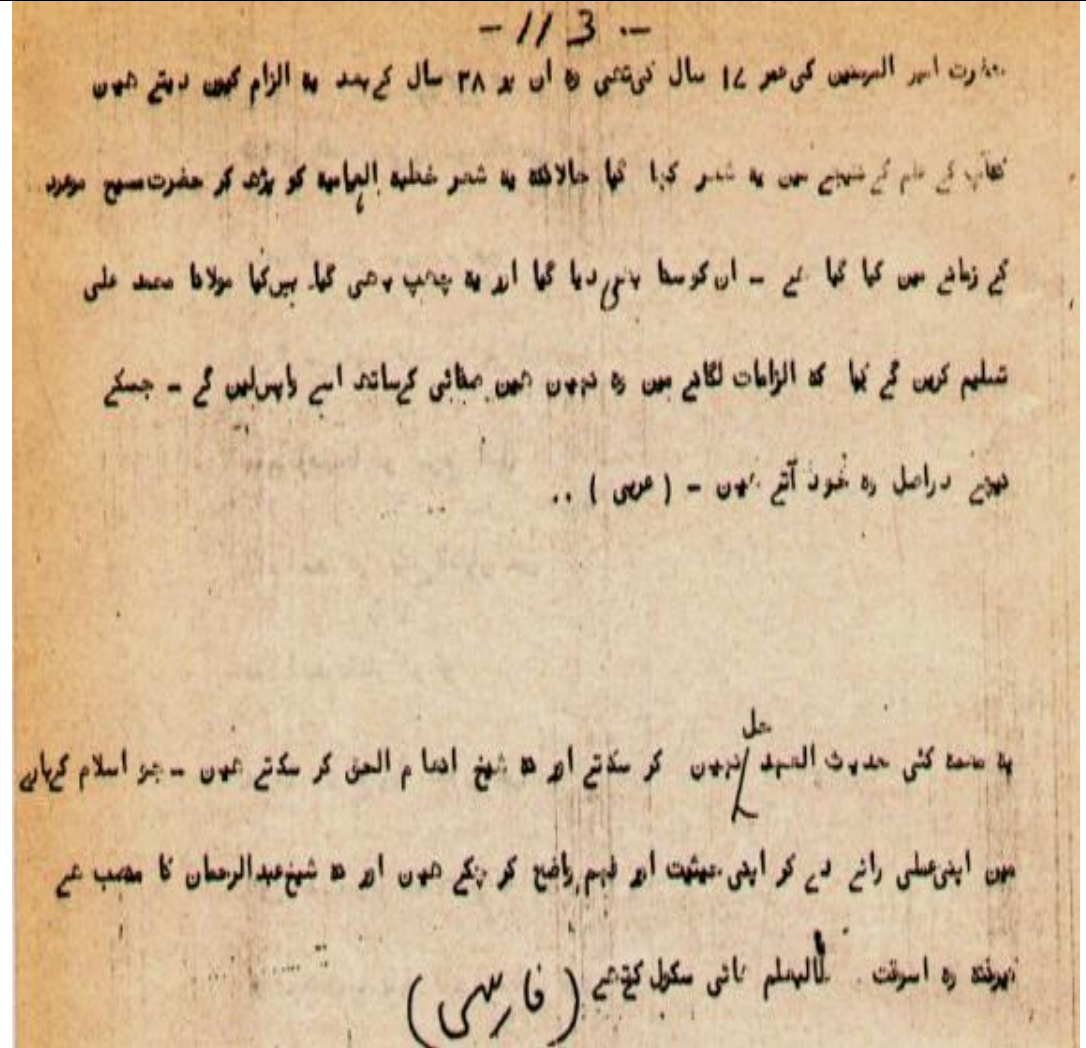 - 113 -
حضرت امیر المومنین کی عمر ۱۷ سال کی تھی وہ ان پر ۳۸ سال کے بعد یہ الزام کیوں دیتے ھیں
کے علم کے نتیجے میں یہ شعر کہا گیا حالانکہ یہ شعر خطبہ الہامیہ کو پڑھ کر حضرت مسیح موعود
کے زمانے میں کہا گیا ھے - ان کو سنا بھی دیا گیا اور یہ چھپ بھی گیا۔ پس کیا مولانا محمد علی
تسلیم کریں گے کہ الزامات لگانے میں وہ نہیں ھیں صفائی کے ساتھ اسے واپس لیں گے - جسکے
نیچے دراصل وہ خود آتے ھیں - ( عربی ) ..
حل
یہ معمہ کئی حدیث العہد نہیں کر سکتے اور نہ شیخ الحق کر سکتے ھیں - جو اسلام کے بارے
میں اپنی عملی رائے دے کر اپنی حیثیت اور فہم واضح کر چکے ھیں اور نہ شیخ عبدالرحمان کا منصب ھے
کیونکہ وہ اسوقت طالبعلم ھائی سکول کے تھے ( فارسی )